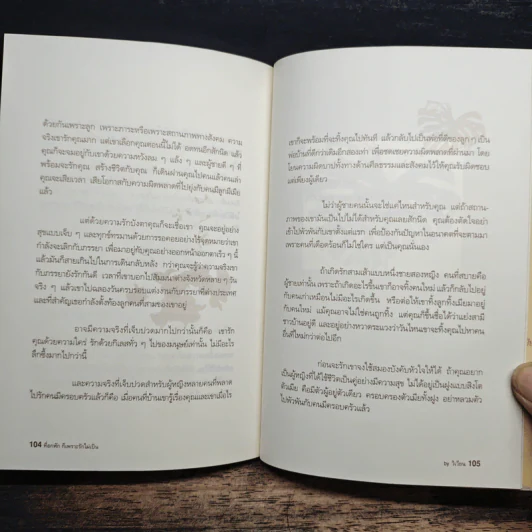 ด้วยกันเพราะลูก เพราะภาระหรือเพราะสถานภาพทางสังคม ความ
จริงเขารักคุณมาก แต่เขาเลือกคุณตอนนี้ไม่ได้ อดทนอีกสักนิด แล้ว
คุณก็จะจมอยู่กับเขาด้วยความหวังลม ๆ แล้ง ๆ และผู้ชายดี ๆ ที่
พร้อมจะรักคุณ สร้างชีวิตกับคุณ ก็เดินผ่านคุณไปคนแล้วคนเล่า
คุณจะเสียเวลา เสียโอกาสกับความผิดพลาดที่ไปยุ่งกับคนมีลูกมีเมีย
แล้ว
แต่ด้วยความรักบังตาคุณก็จะเชื่อเขา คุณจะอยู่อย่าง
สุขแบบเจ็บ ๆ และทุกข์ทรมานด้วยการรอคอยอย่างไร้จุดหมายว่าเขา
กำลังจะเลิกกับภรรยา เพื่อมาอยู่กับคุณอย่างออกหน้าออกตาเร็ว ๆ นี้
แล้วมันก็สายเกินไปในการเดินกลับหลัง กว่าคุณจะรู้ว่าความจริงเขา
กับภรรยายังรักกันดี เวลาที่เขาบอกไปสัมมนาต่างจังหวัดหลาย ๆ วัน
จริง ๆ แล้วเขาไปฉลองวันครบรอบแต่งงานกับภรรยาที่ต่างประเทศ
และที่สำคัญเธอกำลังตั้งท้องลูกคนที่สามของเขาอยู่
อาจมีความจริงที่เจ็บปวดมากไปกว่านั้นก็คือ เขารัก
คุณด้วยความใคร่ รักด้วยกิเลสทั่ว ๆ ไปของมนุษย์เท่านั้น ไม่มีอะไร
ลึกซึ้งมากไปกว่านี้
และความจริงที่เจ็บปวดสำหรับผู้หญิงหลายคนที่พลาด
ไปรักคนมีครอบครัวแล้วก็คือ เมื่อคนที่บ้านเขารู้เรื่องคุณและเขาเมื่อไร
104 ที่อกหัก ก็เพราะรักไม่เป็น
เขาก็จะพร้อมที่จะทิ้งคุณไปทันที แล้วกลับไปเป็นพ่อที่ดีของลูกๆ เป็น
พ่อบ้านที่ดีกว่าเดิมอีกสองเท่า เพื่อชดเชยความผิดพลาดที่ผ่านมา โดย
โยนความผิดบาปทั้งทางด้านศีลธรรมและสังคมไว้ให้คุณรับผิดชอบ
แต่เพียงผู้เดียว
ไม่ว่าผู้ชายคนนั้นจะใช่แค่ไหนสำหรับคุณ แต่ถ้าสถาน-
ภาพของเขามันเป็นไปไม่ได้สำหรับคุณเลยสักนิด คุณต้องตัดใจอย่า
เข้าไปพัวพันกับเขาตั้งแต่แรก เพื่อป้องกันปัญหาในอนาคตที่จะตามมา
เพราะคนที่เดือดร้อนก็ไม่ใช่ใคร แต่เป็นคุณนั่นเอง
ถ้าเกิดรักสามเส้าแบบหนึ่งชายสองหญิง คนที่สบายคือ
ผู้ชายเท่านั้น เพราะถ้าเกิดอะไรขึ้นเขาก็อาจทิ้งคนใหม่ แล้วกลับไปอยู่
กับคนเก่าเหมือนไม่มีอะไรเกิดขึ้น หรือต่อให้เขาทิ้งลูกทิ้งเมียมาอยู่
กับคนใหม่ แม้คุณอาจไม่ใช่คนถูกทิ้ง แต่คุณก็ขึ้นชื่อได้ว่าแย่งสามี
ชาวบ้านอยู่ดี และอยู่อย่างหวาดระแวงว่าวันไหนเขาจะทิ้งคุณไปหาคน
อื่นอีกหรือไม่
ก่อนจะรักเขาจงใช้สมองบังคับหัวใจให้ได้ ถ้าคุณอยาก
เป็นผู้หญิงที่ได้ใช้ชีวิตเป็นคู่อย่างมีความสุข ไม่ได้อยู่เป็นฝูงแบบสิงโต
ตัวเมีย คือมีตัวผู้อยู่ตัวเดียว ครอบครองตัวเมียทั้งฝูง อย่าหลวมตัว
ไปพัวพันกับคนมีครอบครัวแล้ว
by วิไลรัตน 105